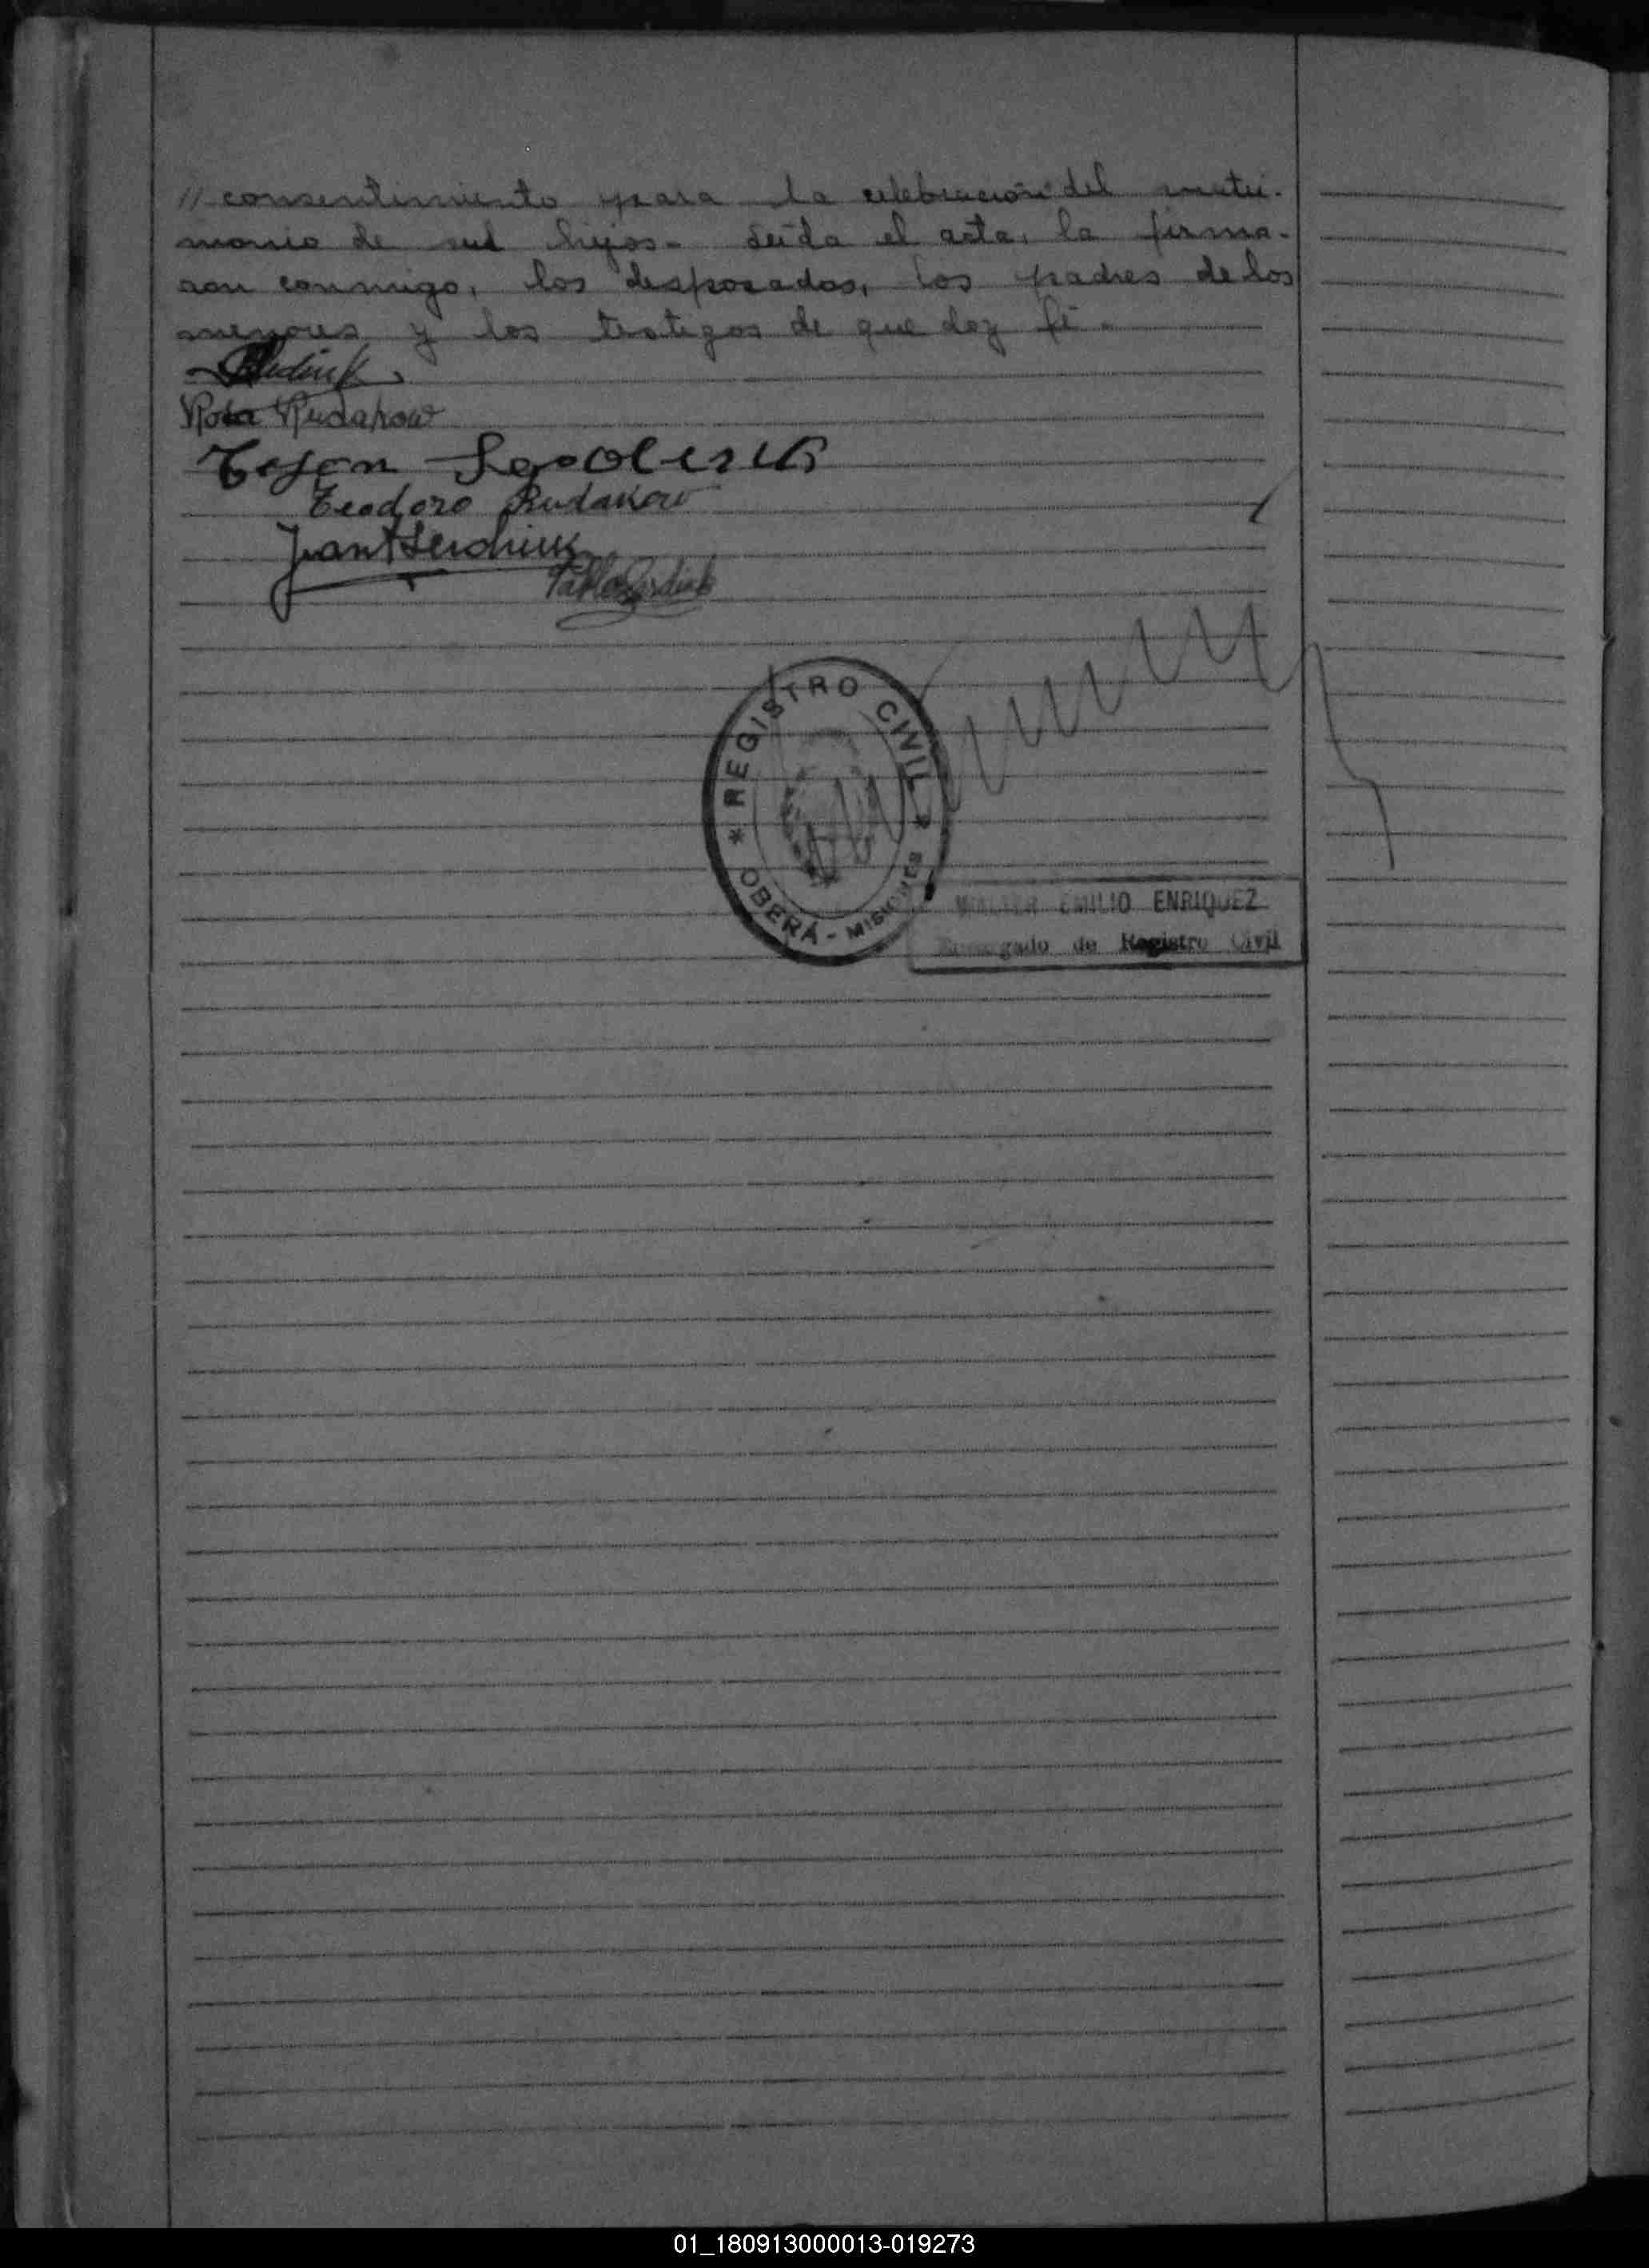 // consentimiento para la celebración del matri-
monio de sus hijos.- Leída el acta, la firma-
ron conmigo, los desposados, los padres de los
menores y los testigos de que doy fé.-
Rosa Rudakow
Teodoro Rudakow
Pablo
REGISTRO CIVIL
* OBERÁ - MISIONES *
WALTER EMILIO ENRIQUEZ
Encargado de Registro Civil
01_180913000013-019273